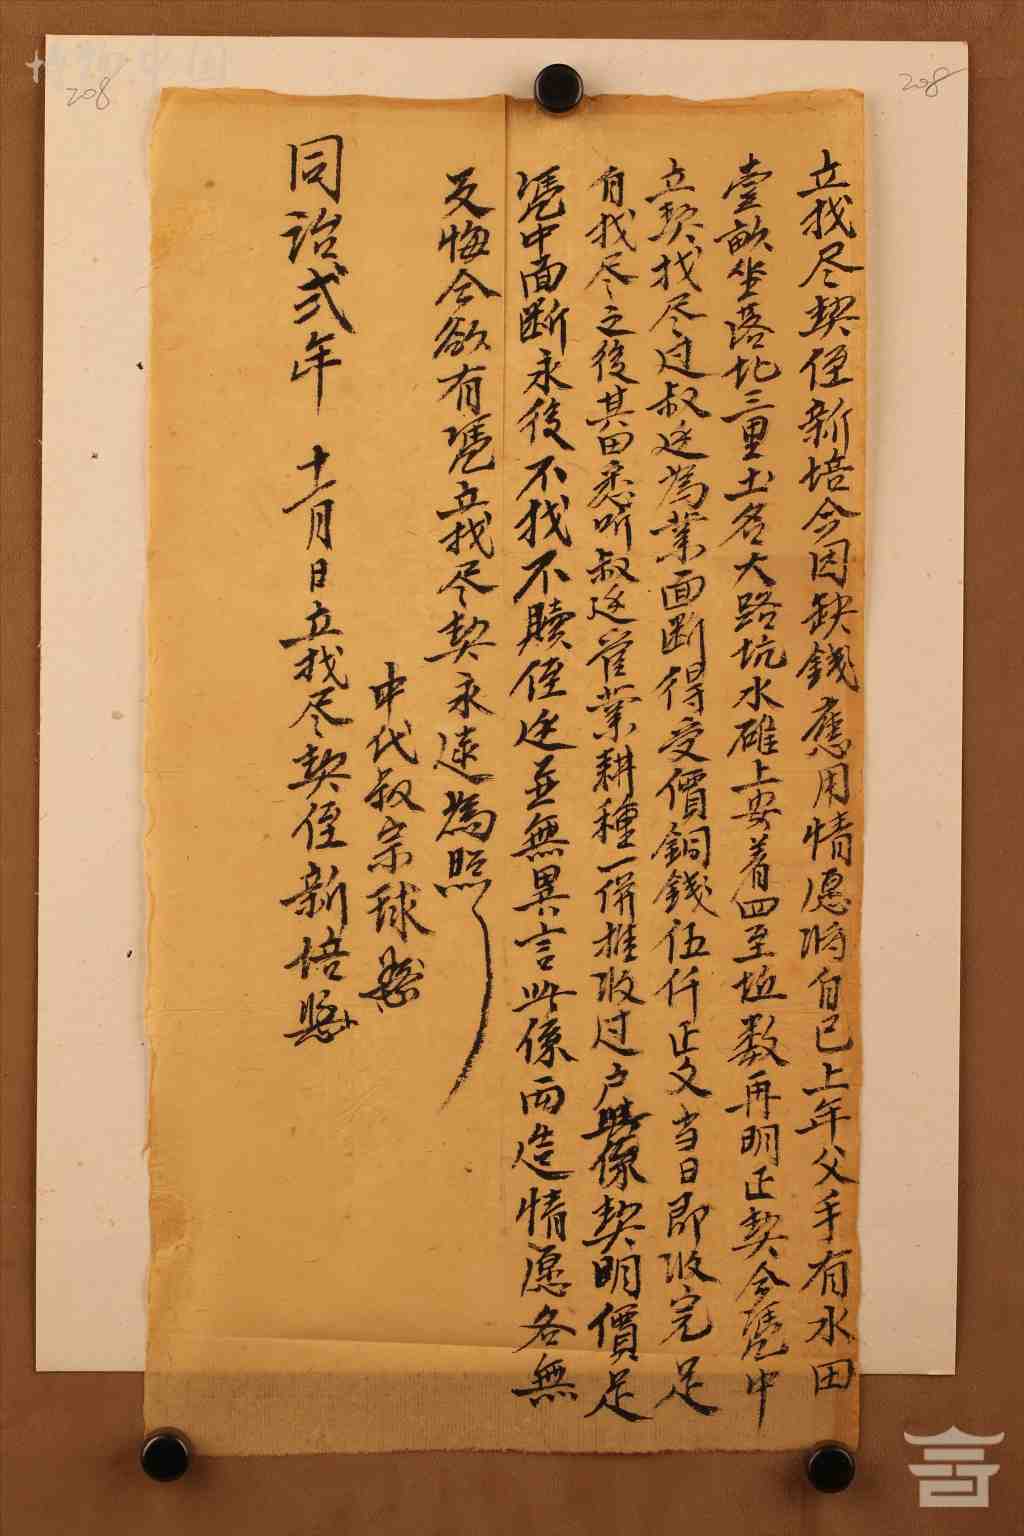 立找尽契侄新培今因缺錢應用情愿将自己上年父手有水田
壹畝坐落北三里土名大路坑水碓上安着四至坵数再明正契今凭中
立契找尽过叔廷為業面断得受價銅錢伍仟正文当日即收完足
自找尽之後其田悉听叔廷管業耕種一併推收过户契明價足
凭中面断永後不找不贖侄廷並無異言此係两造情愿各無
反悔今欲有凭立找尽契永遠為照
中代叔宗球
同治弍年 十一月日立找尽契侄新培
208
208